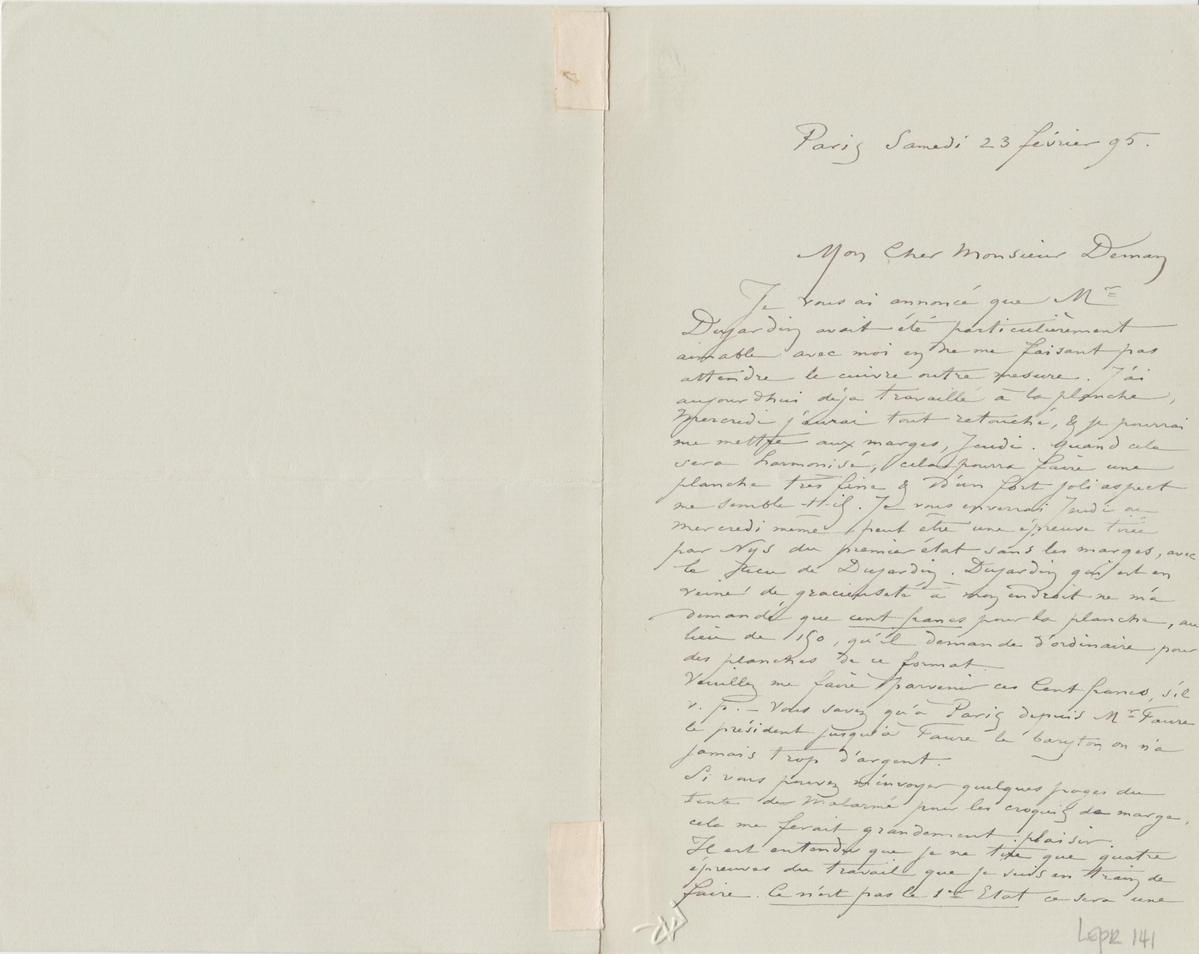 Paris Samedi 23 février 95.
Mon Cher Monsieur Deman
Je vous ai annoncé que Mr
Dujardin avait été particulièrement
aimable avec moi en ne me faisant pas
attendre le cuivre outre mesure. J'ai
aujourdhui déja travaillé à la planche,
Mercredi j'aurai tout retouché, & je pourrai
me mettre aux marges, Jeudi. quand cela
sera harmonisé, cela pourra faire une
planche très fine & d'un fort joli aspect
me semble-t-il. Je vous enverrai Jeudi ou
mercredi même peut être une épreuve tirée
par Nys du premier état sans les marges, avec
le de Dujardin. Dujardin qui est en
veine de gracieuseté à mon endroit ne m'a
demandé que cent francs pour la planche, au
lieu de 150, qu'il demande d'ordinaire pour
des planches de ce format.
Veuillez me faire parvenir ces Cent francs, s'il
v. p. – Vous savez qu'à Paris depuis Mr Faure
le président jusqu'à Faure le baryton on n'a
jamais trop d'argent.
Si vous pouvez m'envoyer quelques pages du
texte de Malarmé pour les croquis de marge,
cela me ferait grandement plaisir.
Il est entendu que je ne tire que quatre
épreuves du travail que je suis en train de
faire. Ce n'est pas le 1er Etat ce sera une
LEPR 141